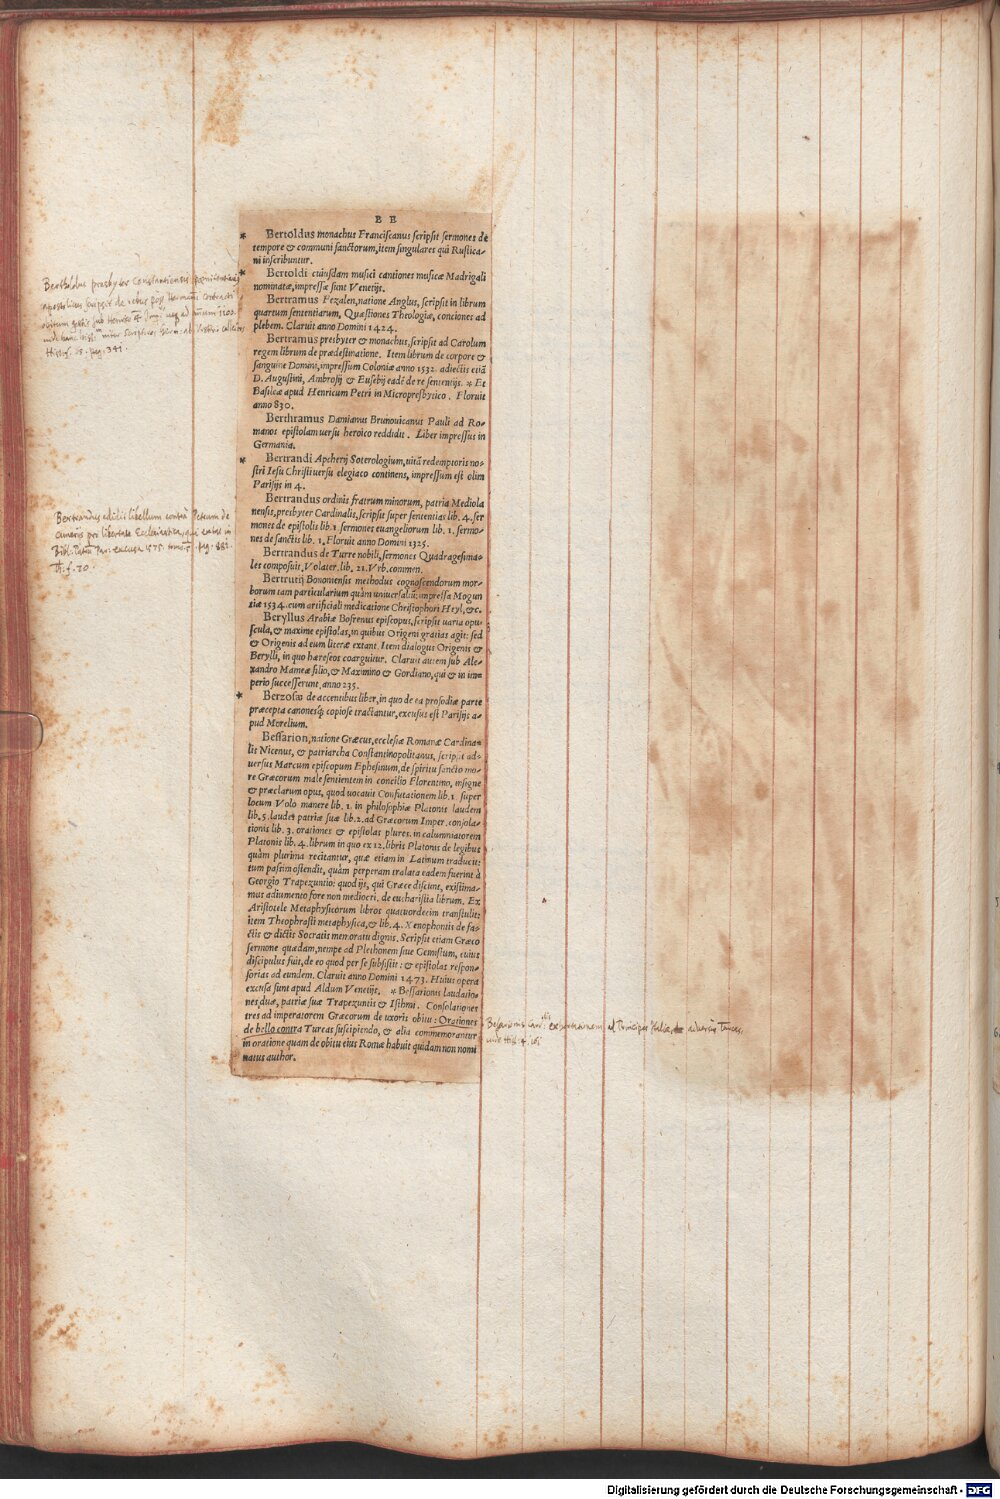 B E
* Bertoldus monachus Franciscanus scripsit sermones de
tempore & communi sanctorum, item singulares qui Rustica-
ni inscribuntur.
* Bertoldi cuiusdam musici cantiones musicæ Madrigali
nominatæ, impressæ sunt Venetijs.
Bertramus Fezalen, natione Anglus, scripsit in librum
quartum sententiarum, Quæstiones Theologiæ, conciones ad
plebem. Claruit anno Domini 1424.
Bertramus presbyter & monachus, scripsit ad Carolum
regem librum de prædestinatione. Item librum de corpore &
sanguine Domini, impressum Coloniæ anno 1532. adiectis etiā
D. Augustini, Ambrosij & Eusebij eadē de re sententijs. * Et
Basileæ apud Henricum Petri in Micropresbytico. Floruit
anno 830.
Berthramus Damianus Brunouicanus Pauli ad Ro-
manos epistolam uersu heroico reddidit. Liber impressus in
Germania.
* Bertrandi Apcherij Soterologium, uitā redemptoris no-
stri Iesu Christi uersu elegiaco continens, impressum est olim
Parisijs in 4.
Bertrandus ordinis fratrum minorum, patria Mediola
nensis, presbyter Cardinalis, scripsit super sententias lib. 4. ser
mones de epistolis lib. 1. sermones euangeliorum lib. 1. sermo-
nes de sanctis lib. 1. Floruit anno Domini 1325.
Bertrandus de Turre nobili, sermones Quadragesima-
les composuit. Volater. lib. 21. Vrb. commen.
Bertrutij Bononiensis methodus cognoscendorum mor-
borum tam particularium quàm uniuersaliū: impressa Mogun
tiæ 1534. cum artificiali medicatione Christophori Heyl, &c.
Beryllus Arabiæ Bosrenus episcopus, scripsit uaria opu
scula, & maxime epistolas, in quibus Origeni gratias agit: sed
& Origenis ad eum literæ extant. Item dialogus Origenis &
Berylli, in quo hæreseos coarguitur. Claruit autem sub Ale-
xandro Mameæ filio, & Maximino & Gordiano, qui & in im-
perio successerunt, anno 235.
* Berzosæ de accentibus liber, in quo de ea prosodiæ parte
præcepta canonesq́; copiose tractantur, excusus est Parisijs a-
pud Morelium.
Bessarion, natione Græcus, ecclesiæ Romanæ Cardina-
lis Nicenus, & patriarcha Constantinopolitanus, scripsit ad-
uersus Marcum episcopum Ephesinum, de spiritu sancto mo-
re Græcorum male sentientem in concilio Florentino, insigne
& præclarum opus, quod uocauit Confutationem lib. 1. super
locum Volo manere lib. 1. in philosophiæ Platonis laudem
lib. 5. laudes patriæ suæ lib. 2. ad Græcorum Imper. consola-
tionis lib. 3. orationes & epistolas plures. in calumniatorem
Platonis lib. 4. librum in quo ex 12. libris Platonis de legibus
quàm plurima recitantur, quæ etiam in Latinum traducit:
tum passim ostendit, quàm perperam tralata eadem fuerint à
Georgio Trapezuntio: quod ijs, qui Græce discunt, existima-
mus adiumento fore non mediocri. de eucharistia librum. Ex
Aristotele Metaphysicorum libros quatuordecim transtulit:
item Theophrasti metaphysica, & lib. 4. Xenophontis de fa-
ctis & dictis Socratis memoratu dignis. Scripsit etiam Græco
sermone quædam, nempe ad Plethonem siue Gemistum, cuius
discipulus fuit, de eo quod per se subsistit: & epistolas respon-
sorias ad eundem. Claruit anno Domini 1473. Huius opera
excusa sunt apud Aldum Venetijs. * Bessarionis laudatio-
nes duæ, patriæ suæ Trapezuntis & Isthmi. Consolationes
tres ad imperatorem Græcorum de uxoris obitu: Orationes
de bello contra Turcas suscipiendo, & alia commemorantur
in oratione quam de obitu eius Romæ habuit quidam non nomi
natus author.
Bertholdus presbyter Constantiensis
apostolicus scripsit de rebus post Hermanni Contracti
obitum gestis sub Henrico
Hist. f. 28. pag. 341.
Bertrandus edidit libellum contra Petrum de
Cuneriis pro libertate Ecclesiastica, qui extat in
Bibl. Patrū Par. excusa 1575. pag. 881.
Th. f. 20.
Bessarionis Card. ad Principes Italiæ, adversus Turcas,
Digitalisierung gefördert durch die Deutsche Forschungsgemeinschaft - DFG